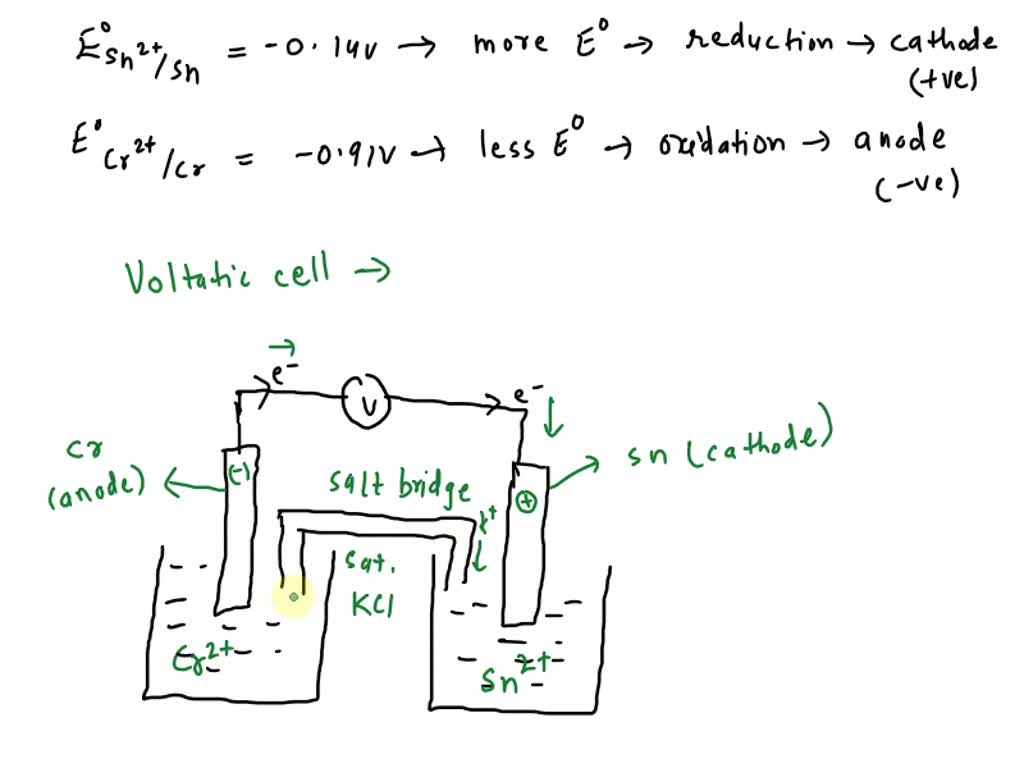 E⁰Sn²⁺/Sn = -0.14V → more E⁰ → reduction → cathode
(+ve)
E⁰Cr²⁺/Cr = -0.91V → less E⁰ → oxidation → anode
(-ve)
Voltatic cell →
→
e⁻
V
e⁻ ↓
Cr
(anode) ←
(-)
salt bridge
+
→ sn (cathode)
k⁺
↓
sat.
KCl
Cr²⁺
Sn²⁺